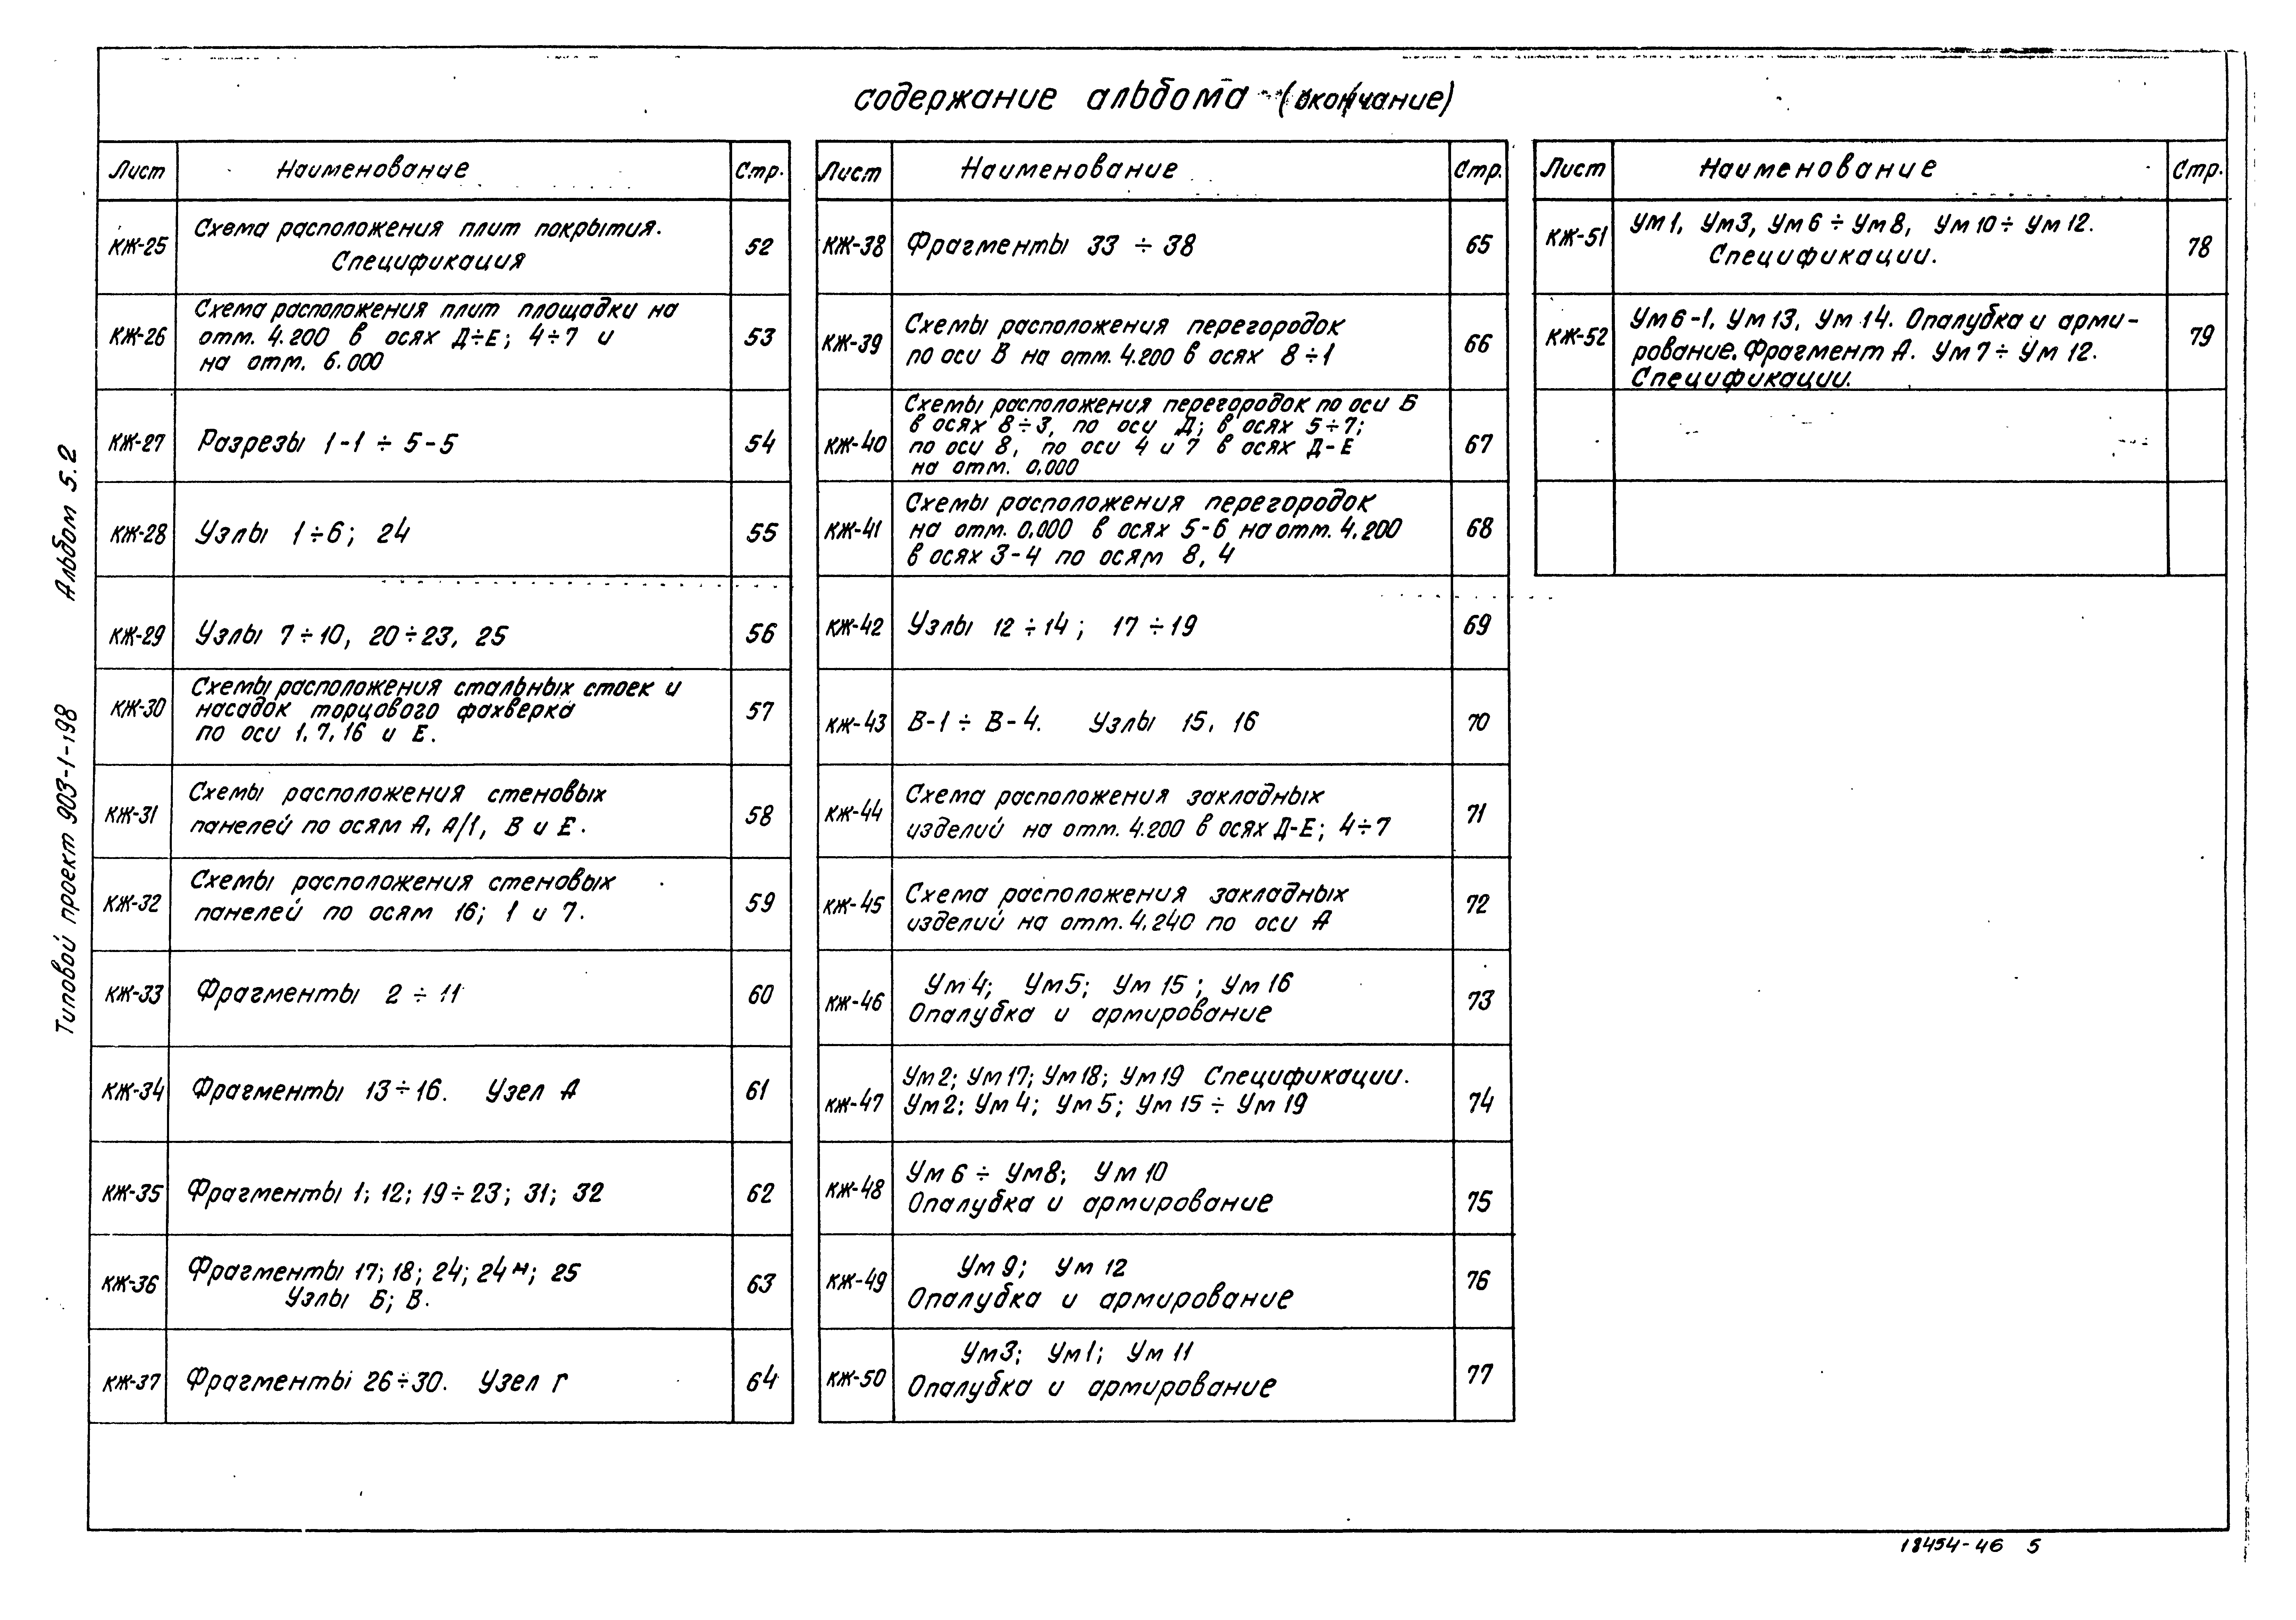 содержание альбома (окончание)
Альбом 5.2
Типовой проект 903-1-198
Лист Наименование Стр.
КЖ-25 Схема расположения плит покрытия.
Спецификация 52
КЖ-26 Схема расположения плит площадки на
отм. 4.200 в осях Д÷Е; 4÷7 и
на отм. 6.000 53
КЖ-27 Разрезы 1-1 ÷ 5-5 54
КЖ-28 Узлы 1÷6; 24 55
КЖ-29 Узлы 7÷10, 20÷23, 25 56
КЖ-30 Схемы расположения стальных стоек и
насадок торцового фахверка
по оси 1, 7, 16 и Е. 57
КЖ-31 Схемы расположения стеновых
панелей по осям А, А/1, В и Е. 58
КЖ-32 Схемы расположения стеновых
панелей по осям 16; 1 и 7. 59
КЖ-33 Фрагменты 2 ÷ 11 60
КЖ-34 Фрагменты 13÷16. Узел А 61
КЖ-35 Фрагменты 1; 12; 19÷23; 31; 32 62
КЖ-36 Фрагменты 17; 18; 24; 24н; 25
Узлы Б; В. 63
КЖ-37 Фрагменты 26÷30. Узел Г 64
Лист Наименование Стр.
КЖ-38 Фрагменты 33 ÷ 38 65
КЖ-39 Схемы расположения перегородок
по оси В на отм. 4.200 в осях 8÷1 66
КЖ-40 Схемы расположения перегородок по оси Б
в осях 8÷3, по оси Д; в осях 5÷7;
по оси 8, по оси 4 и 7 в осях Д-Е
на отм. 0,000 67
КЖ-41 Схемы расположения перегородок
на отм. 0,000 в осях 5-6 на отм. 4,200
в осях 3-4 по осям 8, 4 68
КЖ-42 Узлы 12÷14; 17÷19 69
КЖ-43 В-1÷В-4. Узлы 15, 16 70
КЖ-44 Схема расположения закладных
изделий на отм. 4.200 в осях Д-Е; 4÷7 71
КЖ-45 Схема расположения закладных
изделий на отм. 4,240 по оси А 72
КЖ-46 Ум 4; Ум 5; Ум 15; Ум 16
Опалубка и армирование 73
КЖ-47 Ум 2; Ум 17; Ум 18; Ум 19 Спецификации.
Ум 2; Ум 4; Ум 5; Ум 15 ÷ Ум 19 74
КЖ-48 Ум 6 ÷ Ум 8; Ум 10
Опалубка и армирование 75
КЖ-49 Ум 9; Ум 12
Опалубка и армирование 76
КЖ-50 Ум 3; Ум 1; Ум 11
Опалубка и армирование 77
Лист Наименование Стр.
КЖ-51 Ум 1, Ум 3, Ум 6 ÷ Ум 8, Ум 10 ÷ Ум 12.
Спецификации. 78
КЖ-52 Ум 6-1, Ум 13, Ум 14. Опалубка и арми-
рование. Фрагмент А. Ум 7 ÷ Ум 12.
Спецификации. 79
18454-46 5